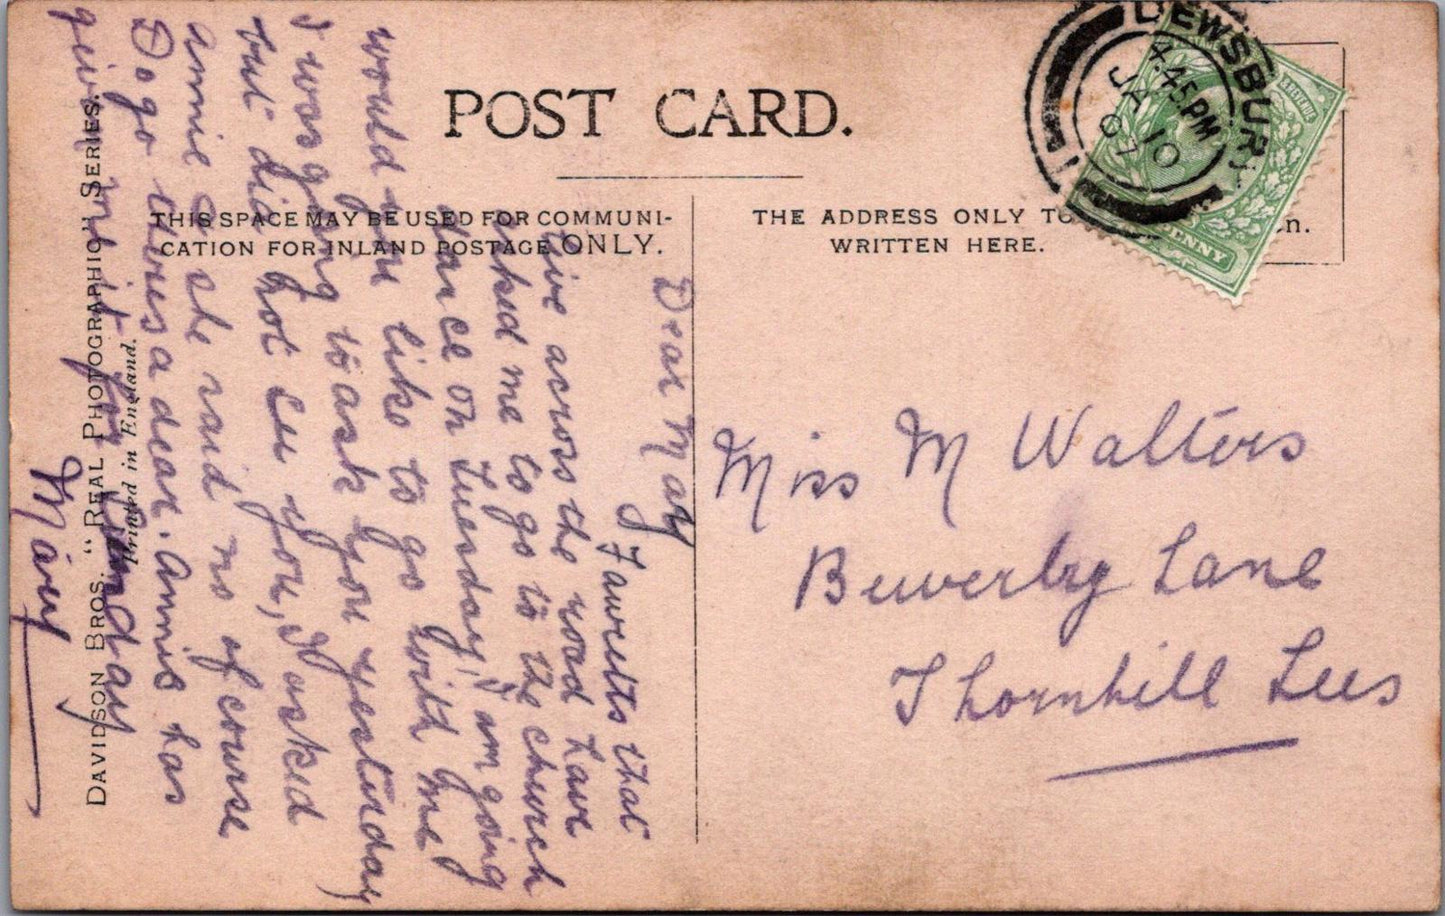 POST CARD.
THIS SPACE MAY BE USED FOR COMMUNI-
CATION FOR INLAND POSTAGE ONLY.
THE ADDRESS ONLY TO
WRITTEN HERE.
DEWSBURY
4.45 PM
JA 10
07
REVENUE
PENNY
Miss M Walters
Beverley Lane
Thornhill Lees
Dear May
Fawcetts that
live across the road have
asked me to go to the church
dance on Tuesday, I am going
would you like to go with me
I was going to ask you yesterday
but did not see you, I asked
Annie & she said no of course
Do go theres a dear. Annie has
given me it for Sunday
Mary
DAVIDSON BROS. "REAL PHOTOGRAPHIC" SERIES.
Printed in England.